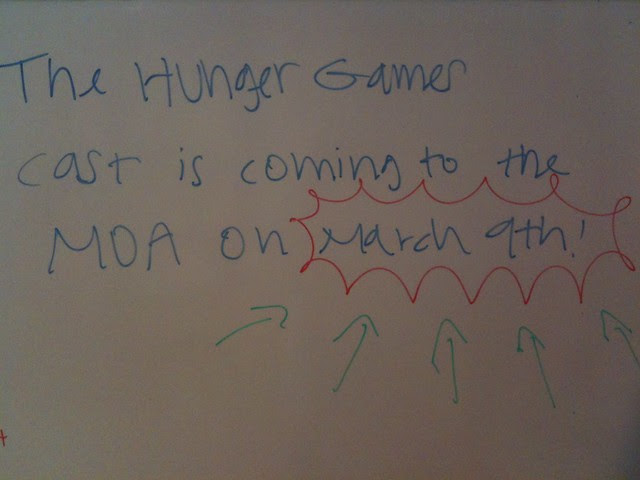 The Hunger Games
cast is coming to the
MOA on March 9th!